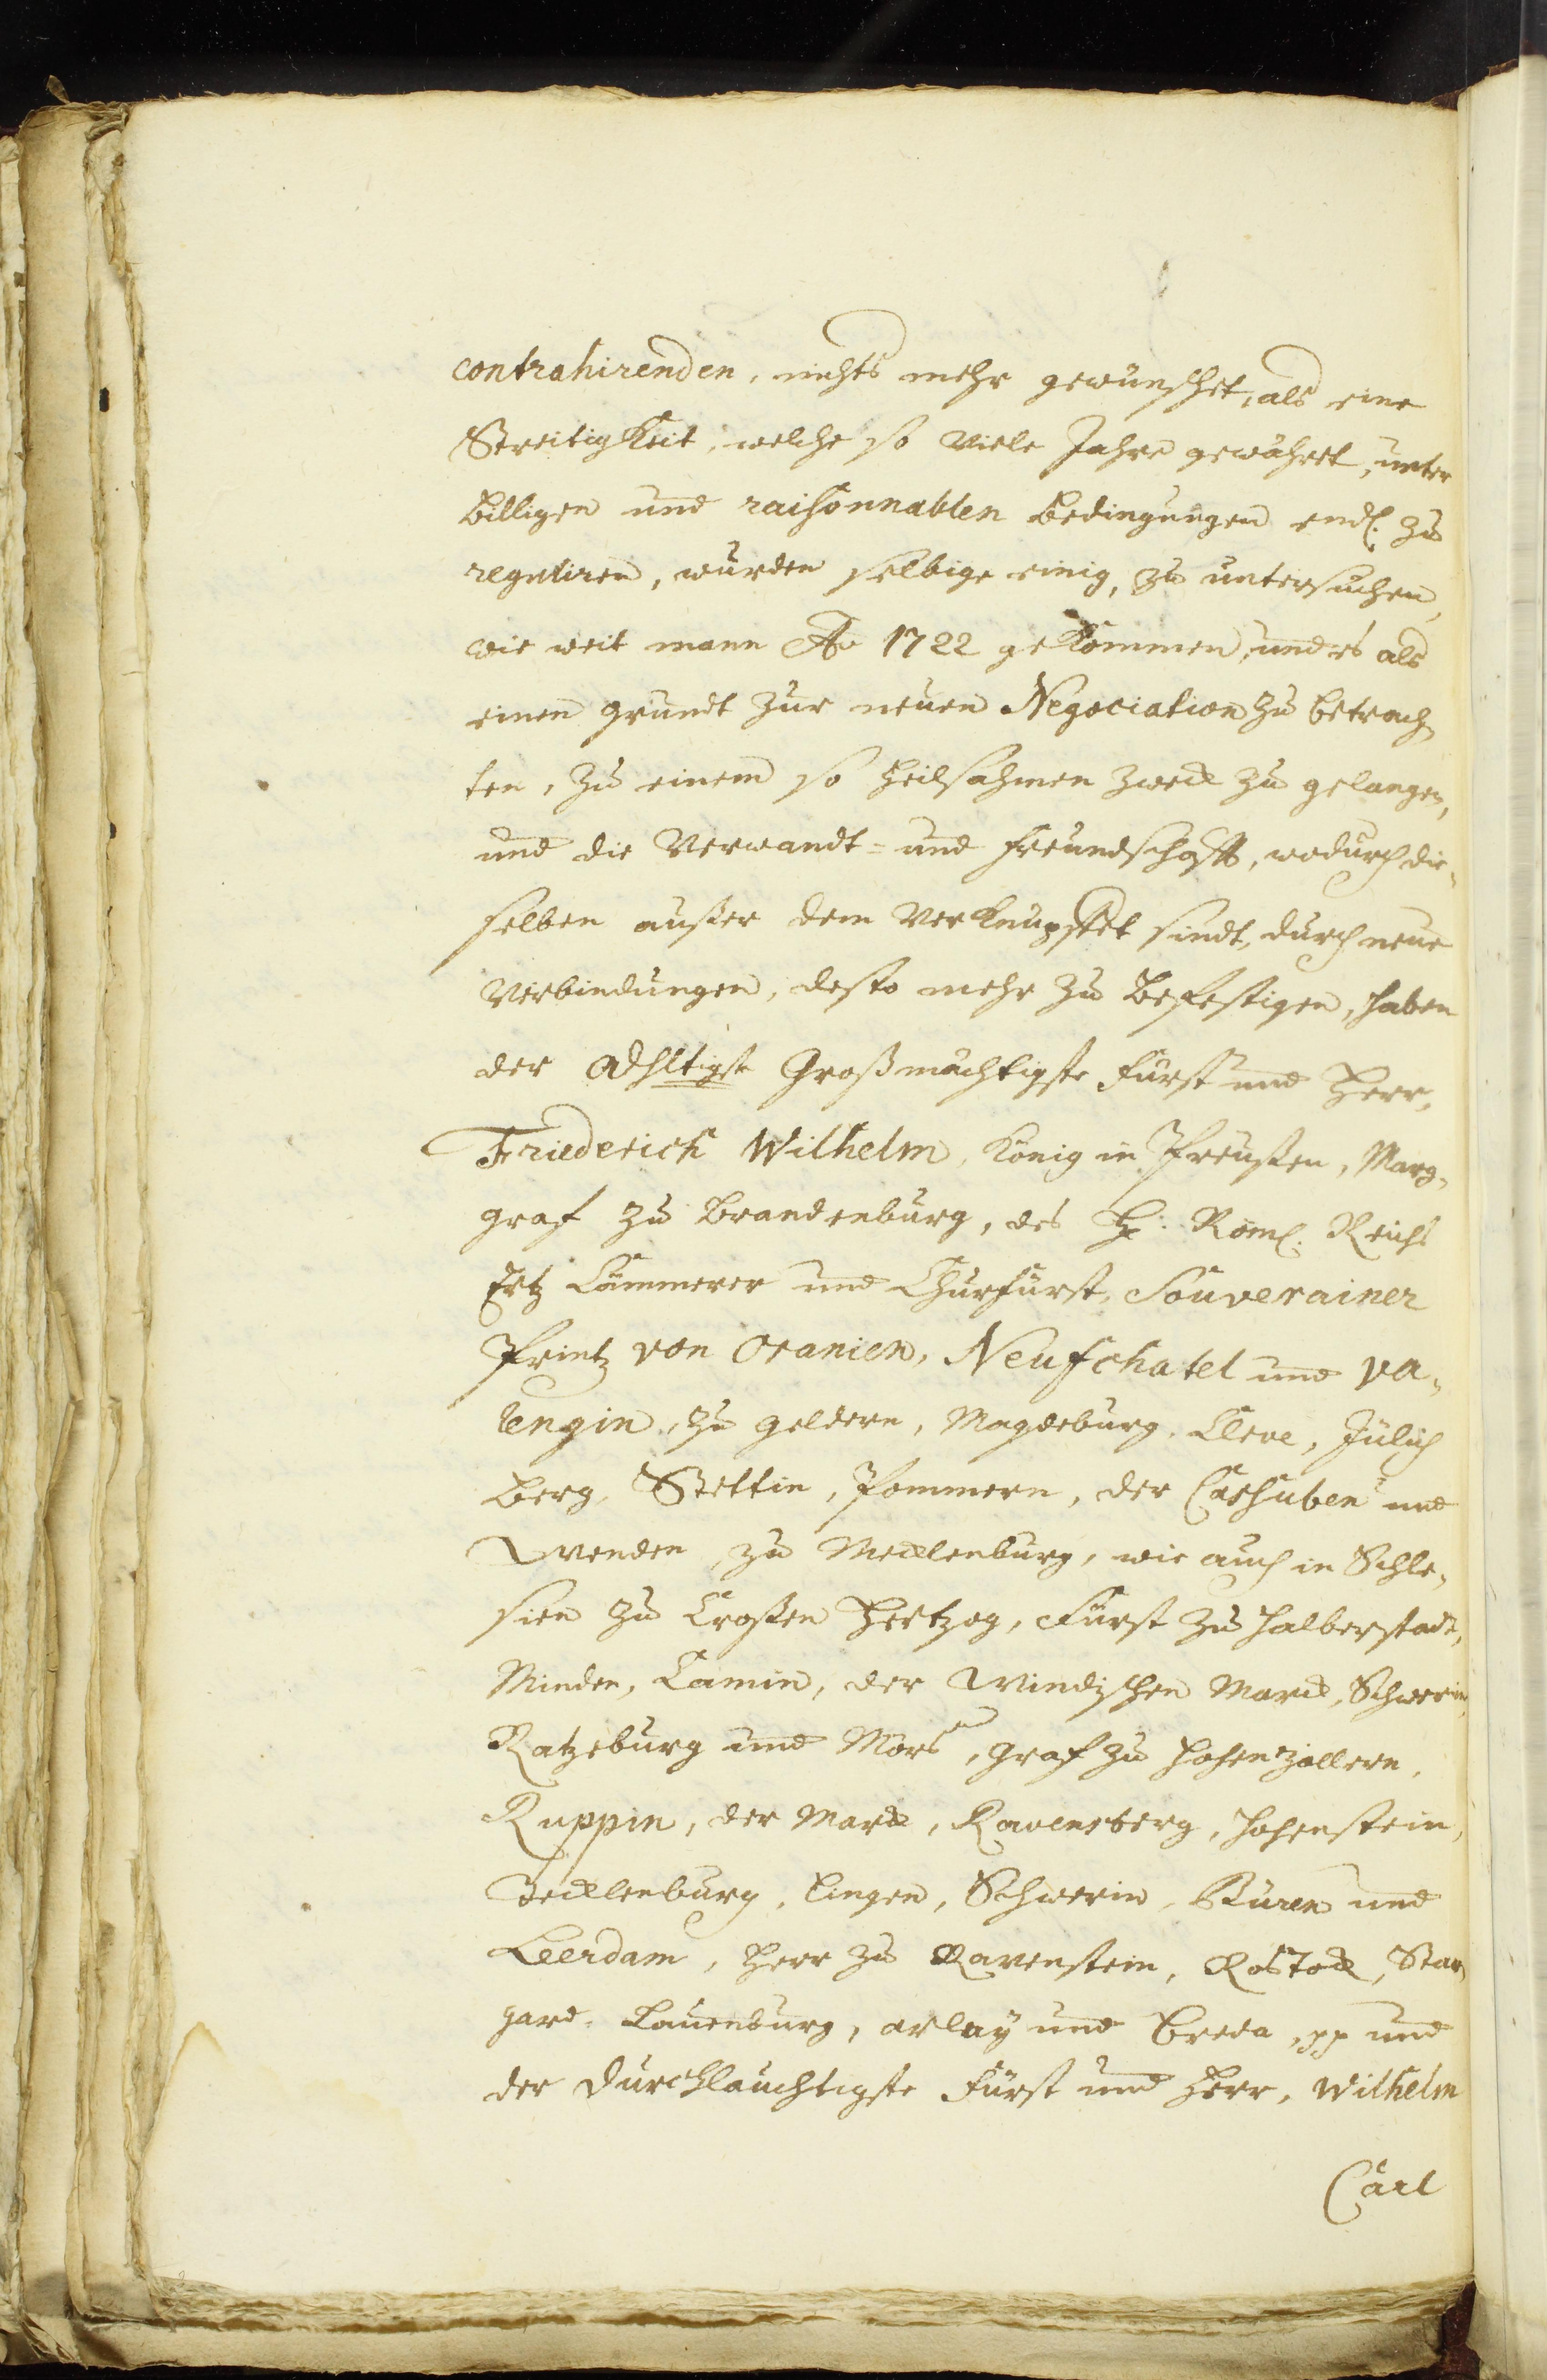 contrahirenden, nichts mehr gewünschet, als eine
Streitigkeit, welche so viele Jahre gewähret, unter
billigen und raisonnablen Bedingungen endl. zu
reguliren, wurden selbige einig, zu untersuchen,
wie weit mann Ao 1722 gekommen, und es als
einen grundt zur neuen Negociation zu betrach,
ten, zu einem so heilsahmen Zweck zu gelangen,
und die Verwandt= und Freundschafft, wodurch die,
selben außer dem verknüpffet sindt, durch neue
Verbindungen, desto mehr zu befestigen, haben
der Großmächtigste Fürst und Herr,
Friederich Wilhelm, König in Preußen, Marg,
graf zu Brandenburg, des H: Röml. Reichs
Ertz Cämmerer und Churfürst, Souverainer
Printz von Oranien, Neufchatel und Va,
lengin, zu Geldern, Magdeburg, Cleve, Jülich
Berg, Stettin, Pommern, der Cassuben und
Wenden, zu Mecklenburg, wie auch in Schle,
sien zu Croßen Hertzog, Fürst zu Halberstadt,
Minden, Camin, der Windischen Marck, Schwerin,
Ratzeburg und Mörs, Graf zu Hohenzollern,
Ruppin, der Marck, Ravensberg, Hohenstein,
Tecklenburg, Lingen, Schwerin, Büren und
Leerdam, Herr zu Ravenstein, Rostock, Star,
gard, Lauenburg, Arlay und Breda, pp und
der Durchlauchtigste Fürst und Herr, Wilhelm
Carl